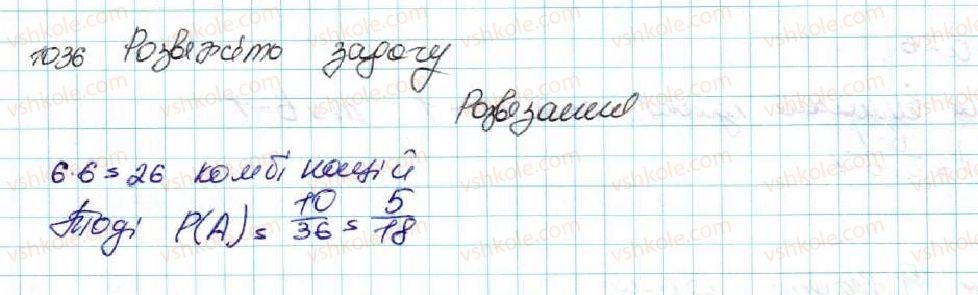 1036 Розвяжіть задачу
Розвязання
6·6=26 комбінацій
Тоді P(A)=10/36=5/18